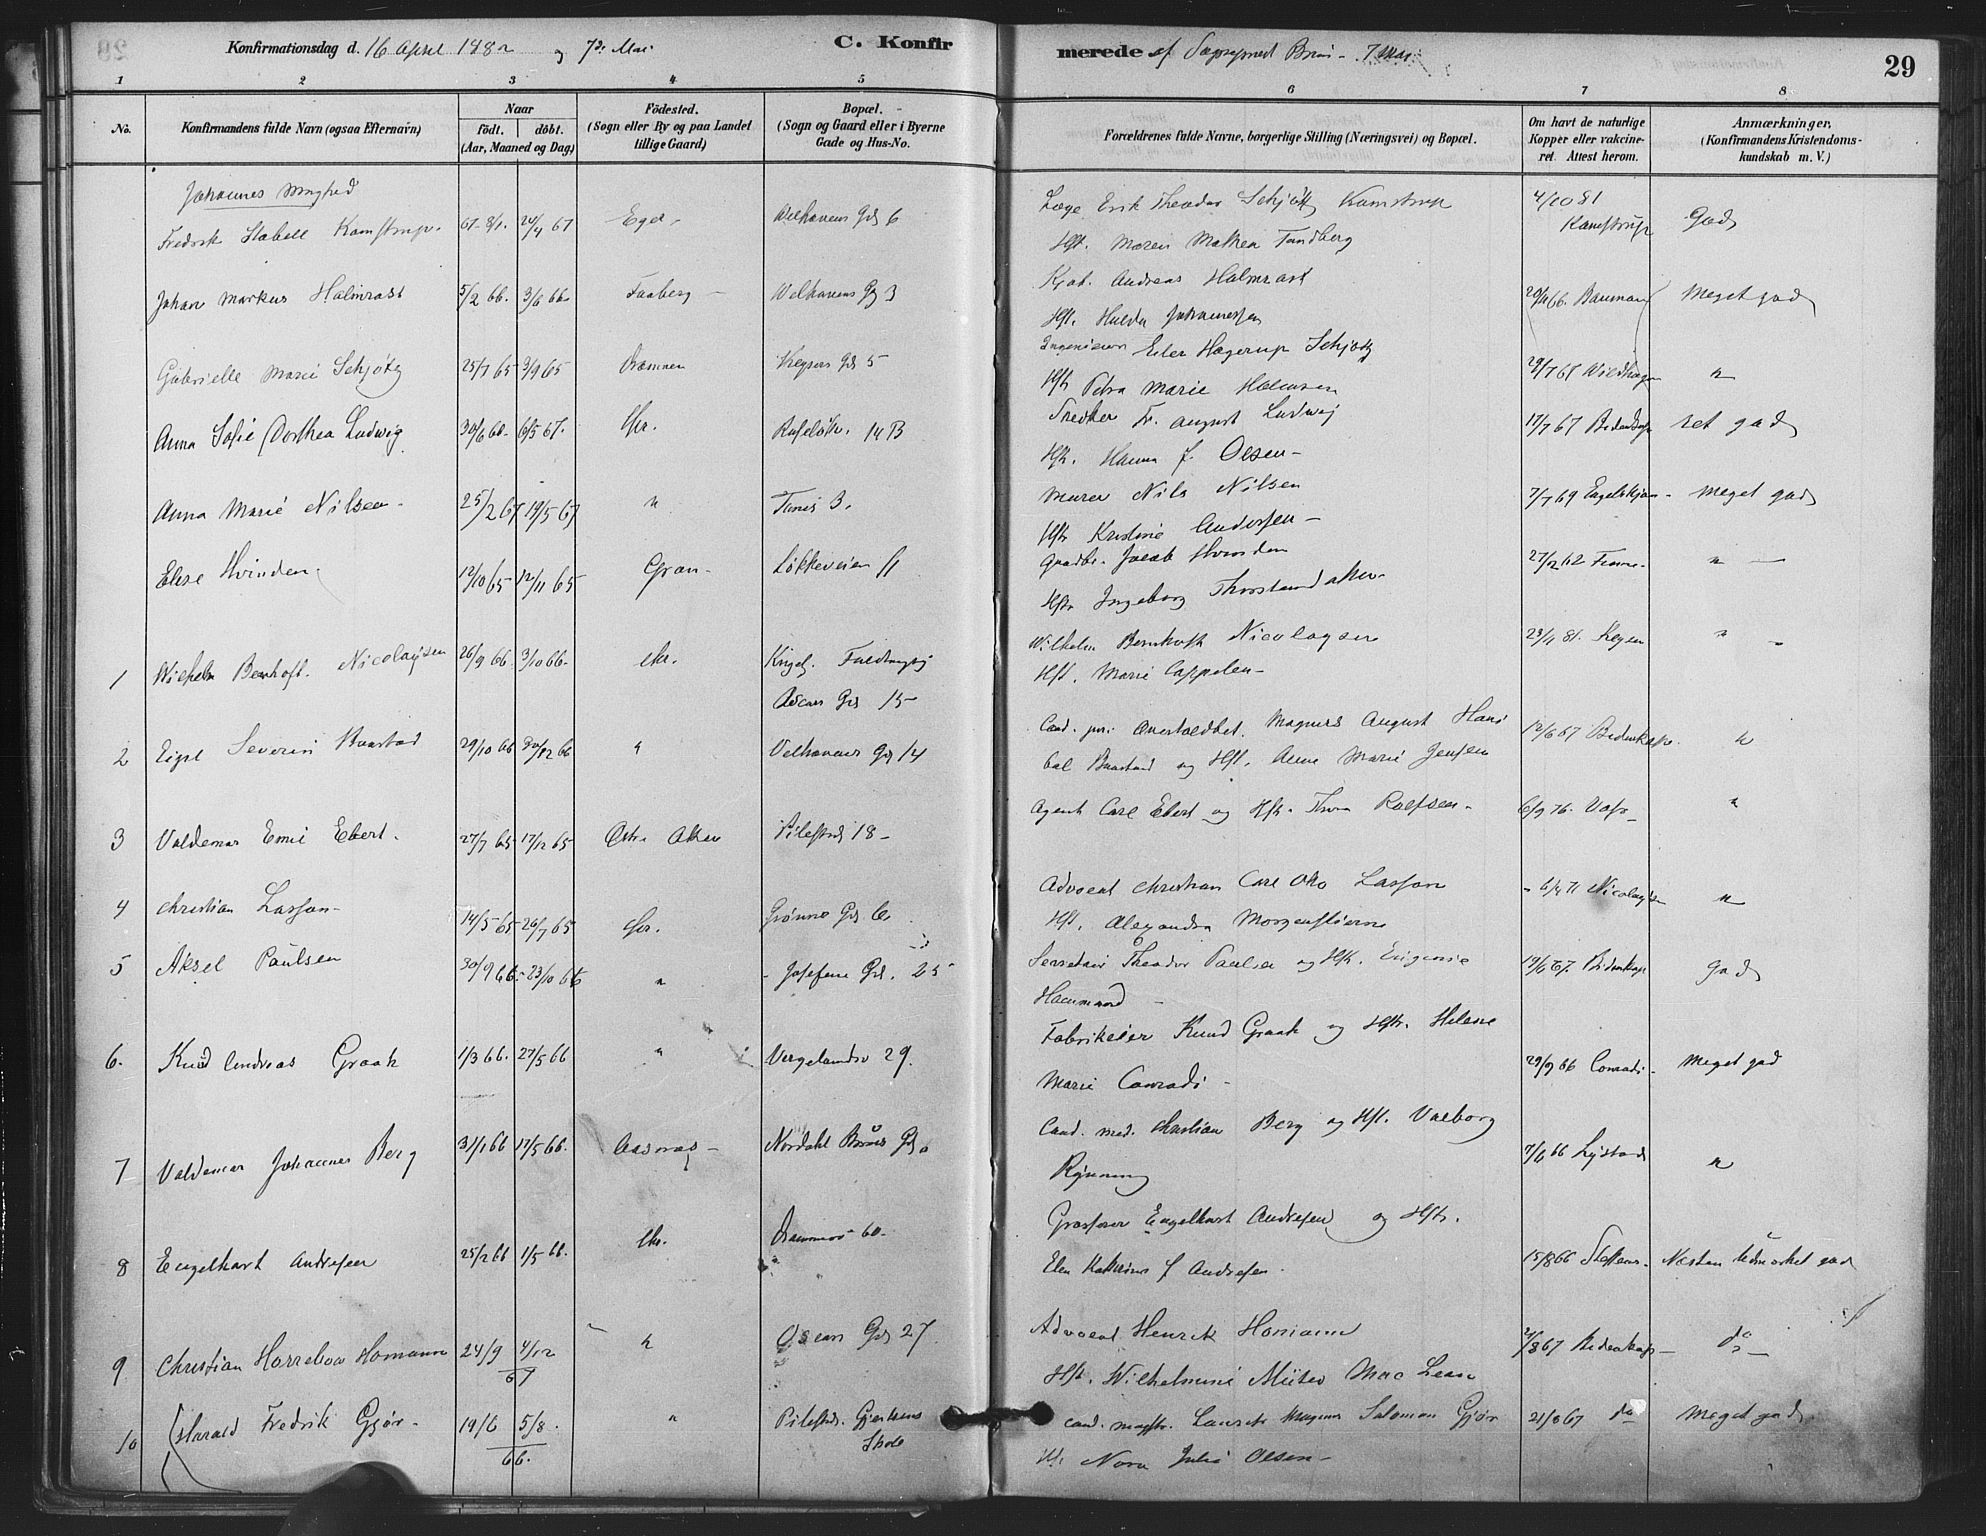 Konfirmationsdag d. 16 April 1882 og 7de Mai C. Konfirmerede af Sogneprest Brun - 7 Mai 29
1 2 3 4 5 6 7 8
No. Konfirmandens fulde Navn (ogsaa Efternavn) Naar født. døbt. (Aar, Maaned og Dag) Fødested. (Sogn eller By og paa Landet tillige Gaard) Bopæl. (Sogn og Gaard eller i Byerne Gade og Hus-No. Forældrenes fulde Navne, borgerlige Stilling (Næringsvei) og Bopæl. Om havt de naturlige Kopper eller vakcineret. Attest herom. Anmærkninger. (Konfirmandens Kristendomskundskab m. V.)
Johannes
Fredrik Stabell Kamstrup. 67 8/1. 24/4 67 Eger Welhavens Gd 6 Læge Erik Theodor Schjøtz Kamstrup 4/10 81 Kamstrup God
Hst. Maren Mathea Tandberg
Johan Markus Halmrast 5/2 66. 3/6 66. Faaberg Welhavens Gd 3 Kjøb. Andreas Halmrast 20/4 66. Meget god
Hst. Hulda Johannessen
Gabrielle Marie Schjøtz 25/7 65 3/9 65 Drammen Keysers Gd 5 Ingenieur Eiler Hagerup Schjøtz n
Hst. Petra Marie
Anna Sofie Dorthea Ludwig 30/6 66. 6/5 67. Chr. 14 B August Ludwig 17/7 67 Bidenkap ret god
Hst. Hanna f. Olsen
Anna Marie Nilsen 25/2 67 19/5 67 n 3. Murer Nils Nilsen 7/7 69 Meget god
Hst. Kristine Andersen
Elise Hvinden 12/10 65 12/11 65 Gran Løkkeveien 11 Gaardbr. Jacob Hvinden 27/2 62 n
Hst. Ingeborg
1 Wilhelm Bernhoft Nicolaysen 26/9 66. 3/10 66. Chr. Wilhelm Bernhoft Nicolaysen 23/4 81. n
Oscars Gd 15 Hst. Marie Cappelen
2 Severin Baastad 29/10 66 30/12 66 n Velhavens Gd 14 Cand. jur. Magnus August Hani- 12/6 67 Bidenkap. n
bal Baastad og Hst. Anne Marie Jensen
3 Valdemar Emil Ebert. 27/7 65 17/12 65 Østre Aker Pilestrd. 18 Agent Carl Ebert og Hst. Thora Rolfsen 6/9 76. n
4 Christian Lasson 14/5 65 26/7 65 Chr. Grønne Gd 6. Advocat Christian Carl Otto Lasson 6/4 71 Nicolaysen n
Hst. Alexandra Morgenstierne
5 Aksel Paulsen 30/9 66. 23/10 66 n Josefine Gd. 25 Secretair Theodor Paulsen og Hst. Eugenie 17/6 67. Bidenkap God
Hammond
6. Knud Andreas Graah 1/3 66. 27/5 66 n Vergelandsv 29. Fabrikeier Knud Graah og Hst. Helene 29/9 66 Conradi Meget god
Marie Conradi
7 Valdemar Johannes Berg 31/1 66 17/5 66. Aasnæs Nordahl Bruns Gd Cand. med. Christian Berg og Hst. Valborg 7/6 66 n
Rynning
8 Engelhart Andresen 25/2 66 1/5 66. Chr. Drammensv 60. Grosserer Engelhart Andresen og Hst. 15/8 66 Steffens. Næsten udmærket god
Elen Kathrine f Andresen
9 Christian Horrebow Homann 24/9 4/12 67 n Oscars Gd 27 Advocat Henrik Homann 2/8 67 Bidenkap do
Hst. Wilhelmine Müller Mac Lean
10 Harald Fredrik Gjør 19/6 5/8. 66. n Pilestrd. Gjertsens Skole Cand. Laurits Magnus Salomon Gjør 21/8 67 do Meget god
Nora Julie Olsen